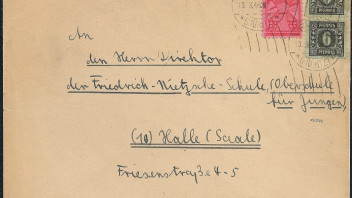 An
den Herrn Direktor
der Friedrich-Nietzsche-Schule, (Oberschule
für Jungen)
(10) Halle (Saale)
Friesenstraße 4-5
PFENNIG
6